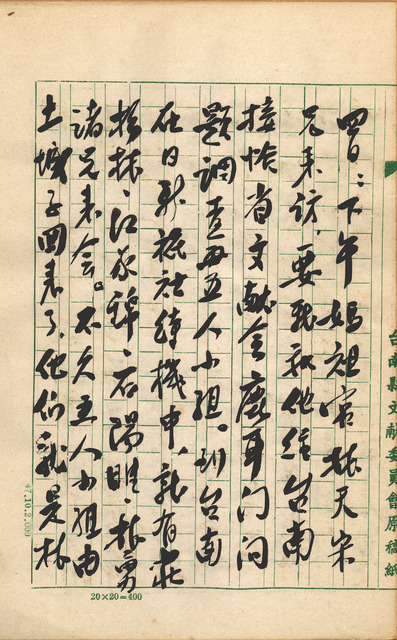 四日：下午媽祖宮林天宋
兄来访，要我和他經台南
接恰省文献会鹿耳门问
题调查五人小组。到台南
在日新旅社待機中，就有莊
松林、江家錦、石陽睢、林勇
諸兄来会。不久五人小组由
土城子回来了，他们就是林
台南縣文獻委員會原稿紙
20×20=400